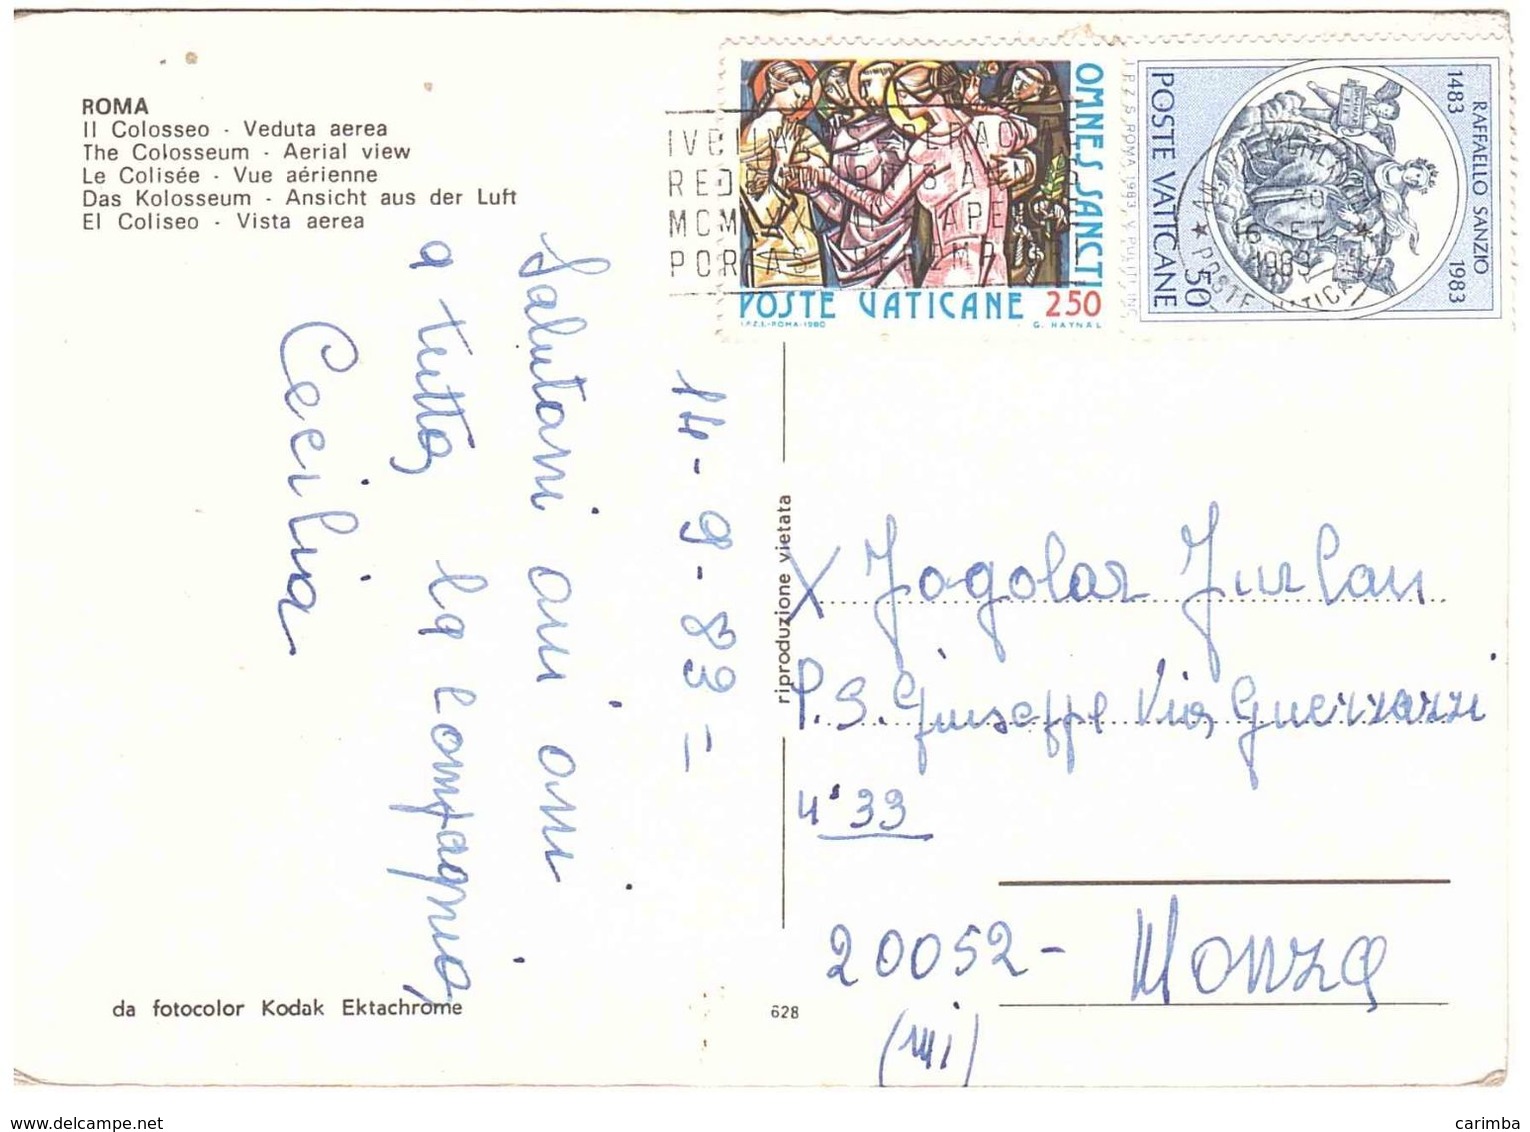 ROMA
Il Colosseo - Veduta aerea
The Colosseum - Aerial view
Le Colisée - Vue aérienne
Das Kolosseum - Ansicht aus der Luft
El Coliseo - Vista aerea
OMNES SANCTI
POSTE VATICANE 250
I.P.Z.S.-ROMA-1980
G. HAYNAL
RAFFAELLO SANZIO
1483 1983
POSTE VATICANE 50
16 SET.
1983
POSTE VATICANE
PORTAS
14-9-83=
Cecilia
a tutta la compagnia
riproduzione vietata
P.S. Giuseppe Via Guerrazzi
n° 33
20052 - Monza
(mi)
da fotocolor Kodak Ektachrome
628
carimba
www.delcampe.net